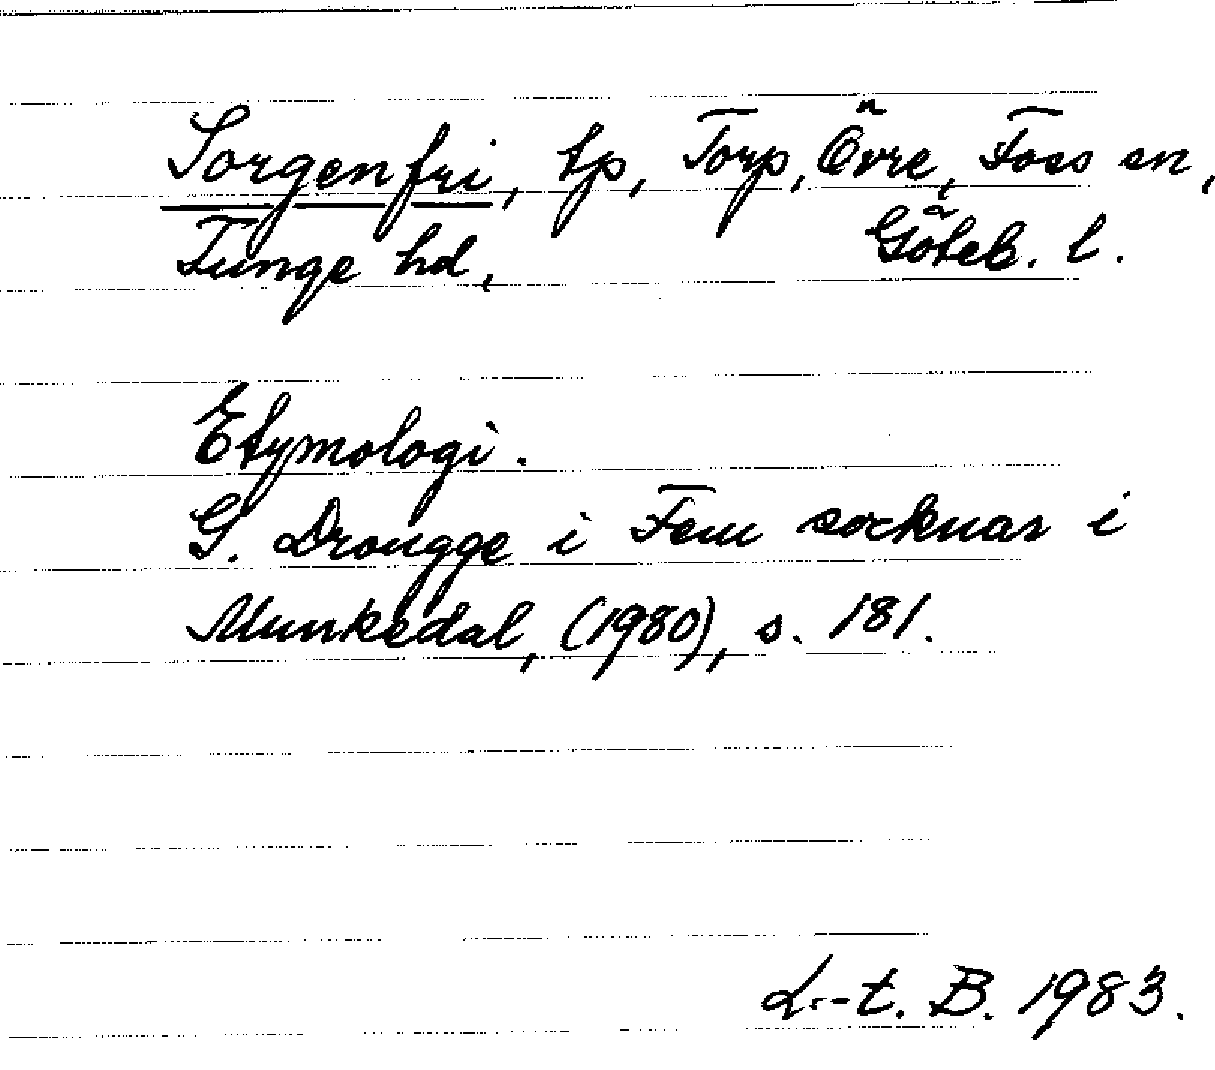 Sorgenfri, tp, Torp, Övre, Foss sn,
Tunge hd, Göteb. l.
Etymologi.
G. Drougge i Fem socknar i
Munkedal, (1980), s. 181.
L.-t. B. 1983.